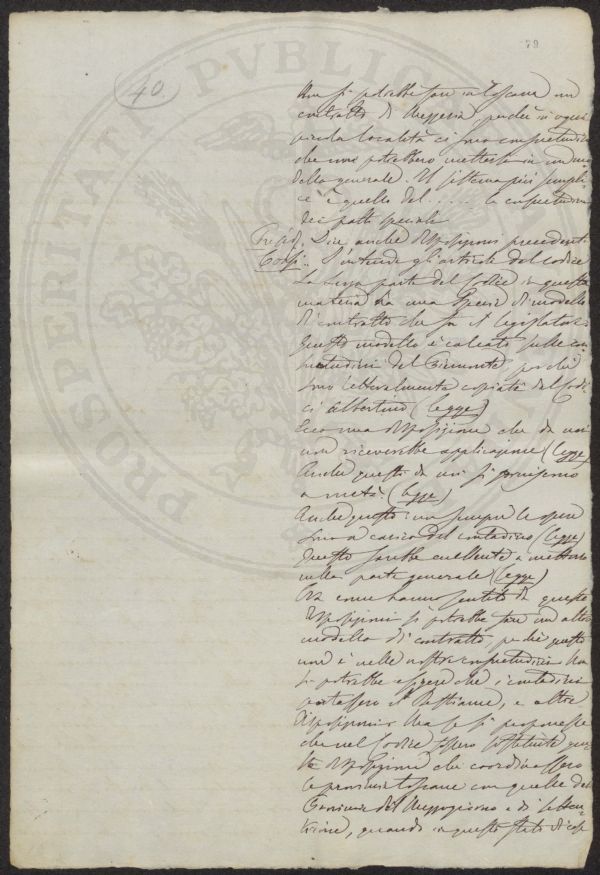 79
40.
Non si potrebbe fare in Toscana un
contratto di Mezzeria, perchè in ogni
piccola località ci sono consuetudini
che non potrebbero mettersi in un mo
dello generale. Il sistema più sempli
ce è quello del ..... la consuetudine
dei patti speciali
Presid. Dice anche disposizioni precedenti
Corsi.. S'intende gli articoli del codice
La terza parte del Codice in questa
materia ha una specie di modello
di contratto che fa il legislatore.
Questo modello è calcato sulle con
suetudini del Piemonte perchè
sono letteralmente copiate del Codi
ce Albertino (legge)
Ecco una disposizione che da noi
non riceverebbe applicazione (legge)
Anche questi da noi si forniscono
a metà. (legge)
Anche questo: no sempre le spese
sono a carico del contadino (legge)
Questo sarebbe eccellente a mettersi
nella parte generale (legge)
Ora come hanno sentito da queste
disposizioni si potrebbe fare un altro
modello di contratto, perchè questo
non è nelle nostre consuetudini. Non
si potrebbe esigere che i contadini
portassero il Bestiame, e altre
disposizioni. Ma se si proponesse
che nel Codice fossero sostituite que
ste disposizioni che coordinassero
le provincie toscane con quelle del
Provincie del Mezzogiorno e di Setten
trione, quando in questo stato di cose